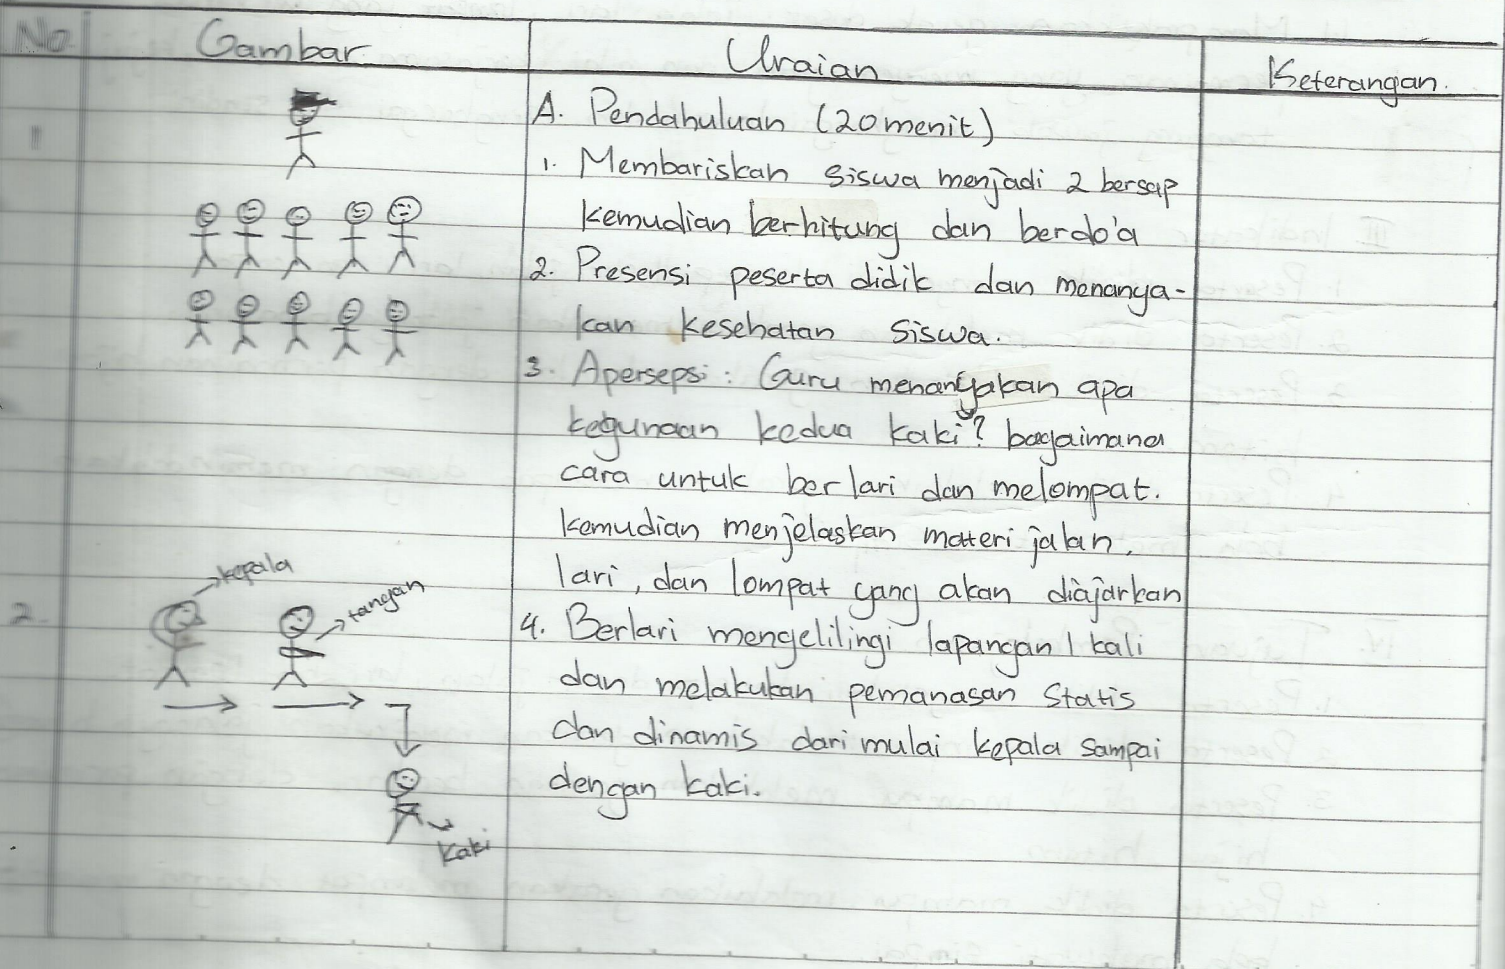 No Gambar Uraian Keterangan.
1 A. Pendahuluan (20 menit)
1. Membariskan siswa menjadi 2 bersap
kemudian berhitung dan berdo'a
2. Presensi peserta didik dan menanya-
kan kesehatan siswa.
3. Apersepsi : Guru menanyakan apa
kegunaan kedua kaki? bagaimana
cara untuk berlari dan melompat.
kemudian menjelaskan materi jalan,
lari, dan lompat yang akan diajarkan
2. kepala
tangan
kaki
4. Berlari mengelilingi lapangan 1 kali
dan melakukan pemanasan statis
dan dinamis dari mulai kepala sampai
dengan kaki.